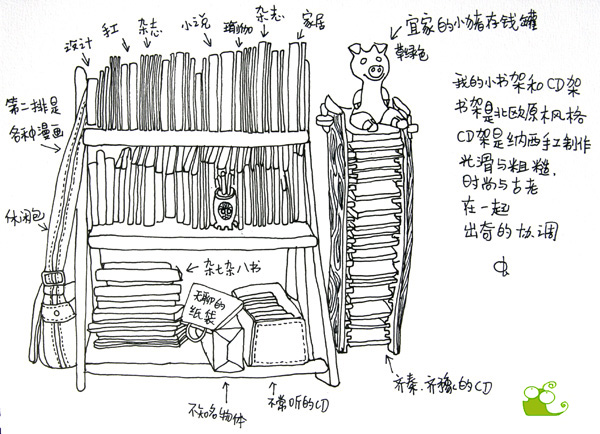 设计
手工
杂志
小说
瑜伽
杂志
家居
宜家的小猪存钱罐
草绿色
第二排是
各种漫画
休闲包
杂七杂八书
无聊的
纸袋
不知名物体
不常听的CD
齐秦、齐豫的CD
我的小书架和CD架
书架是北欧原木风格
CD架是纳西手工制作
光滑与粗糙
时尚与古老
在一起
出奇的协调